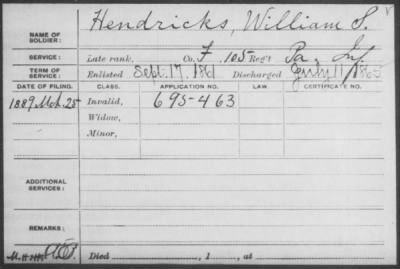 Hendricks, William S.
NAME OF SOLDIER:
SERVICE: Late rank, Co. F, 105 Reg't Pa. Inf
TERM OF SERVICE: Enlisted Sept. 17, 1861 Discharged July 11, 1865
DATE OF FILING. CLASS. APPLICATION NO. LAW. CERTIFICATE NO.
1889 Mch. 25 Invalid, 695-463
Widow,
Minor,
ADDITIONAL SERVICES:
REMARKS:
Died , 1 , at